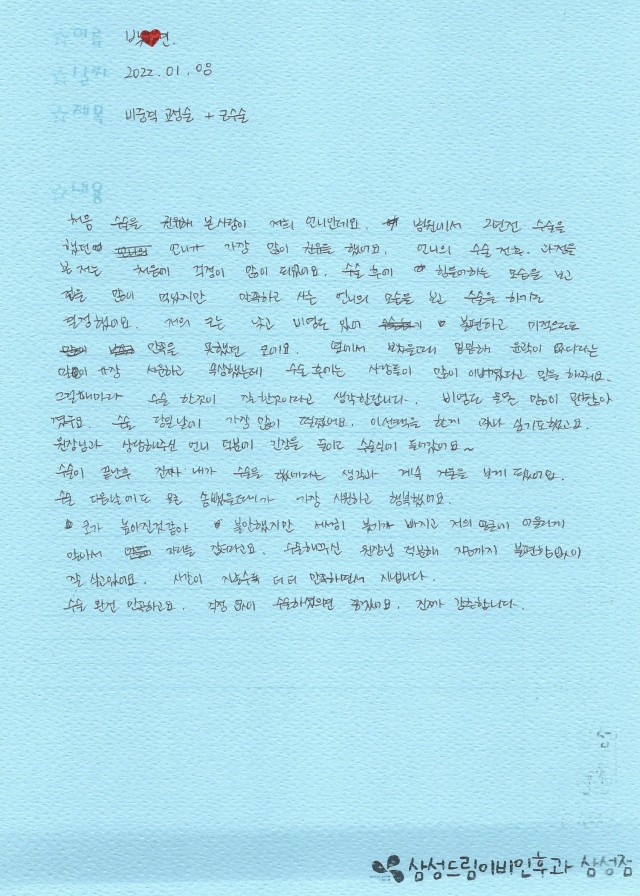 ☆이름 박♥연.
☆날짜 2022.01.08
☆제목 비중격 교정술 + 코수술
☆내용
처음 수술을 권유해 본 사람이 저희 언니인데요. 병원에서 2년전 수술을
했던 언니가 가장 많이 권유를 했어요. 언니의 수술 전후. 과정을
본 저는 처음에 걱정이 많이 되었어요. 수술 후에 힘들어하는 모습을 보고
겁을 많이 먹었지만 만족하고 사는 언니의 모습을 보고 수술을 하기로
결정했어요. 저의 코는 낮고 비염도 있어 불편하고 미적으로
만족을 못했던 코에요. 옆에서 보았을때 밋밋해 윤곽이 없다라는
말이 가장 서운하고 속상했는데 수술 후에는 사람들이 많이 이뻐졌다고 말을 해줘요.
그럴때마다 수술 한것이 잘한것이라고 생각한답니다. 비염도 물론 많이 완화
되었구요. 수술 당일날이 가장 많이 떨렸어요.
원장님과 상담해주신 언니 덕분에 긴장을 풀고 수술실에 들어갔어요~
수술이 끝난후 진짜 내가 수술을 했네라는 생각과 계속 거울을 보게 되었어요.
수술 다음날에도 솜뺐을때가 가장 시원하고 행복했어요.
코가 높아진것같아 불안했지만 서서히 붓기가 빠지고 저의 얼굴에 어울리게
알아서 자리를 잡더라고요. 수술해주신 원장님 덕분에 지금까지 불편함없이
잘 살고있어요. 시간이 지날수록 더 더 만족하면서 지냅니다.
수술 완전 만족하고요. 걱정 없이 수술하셨으면 좋겠어요. 진짜 감사합니다.
삼성드림이비인후과 삼성점